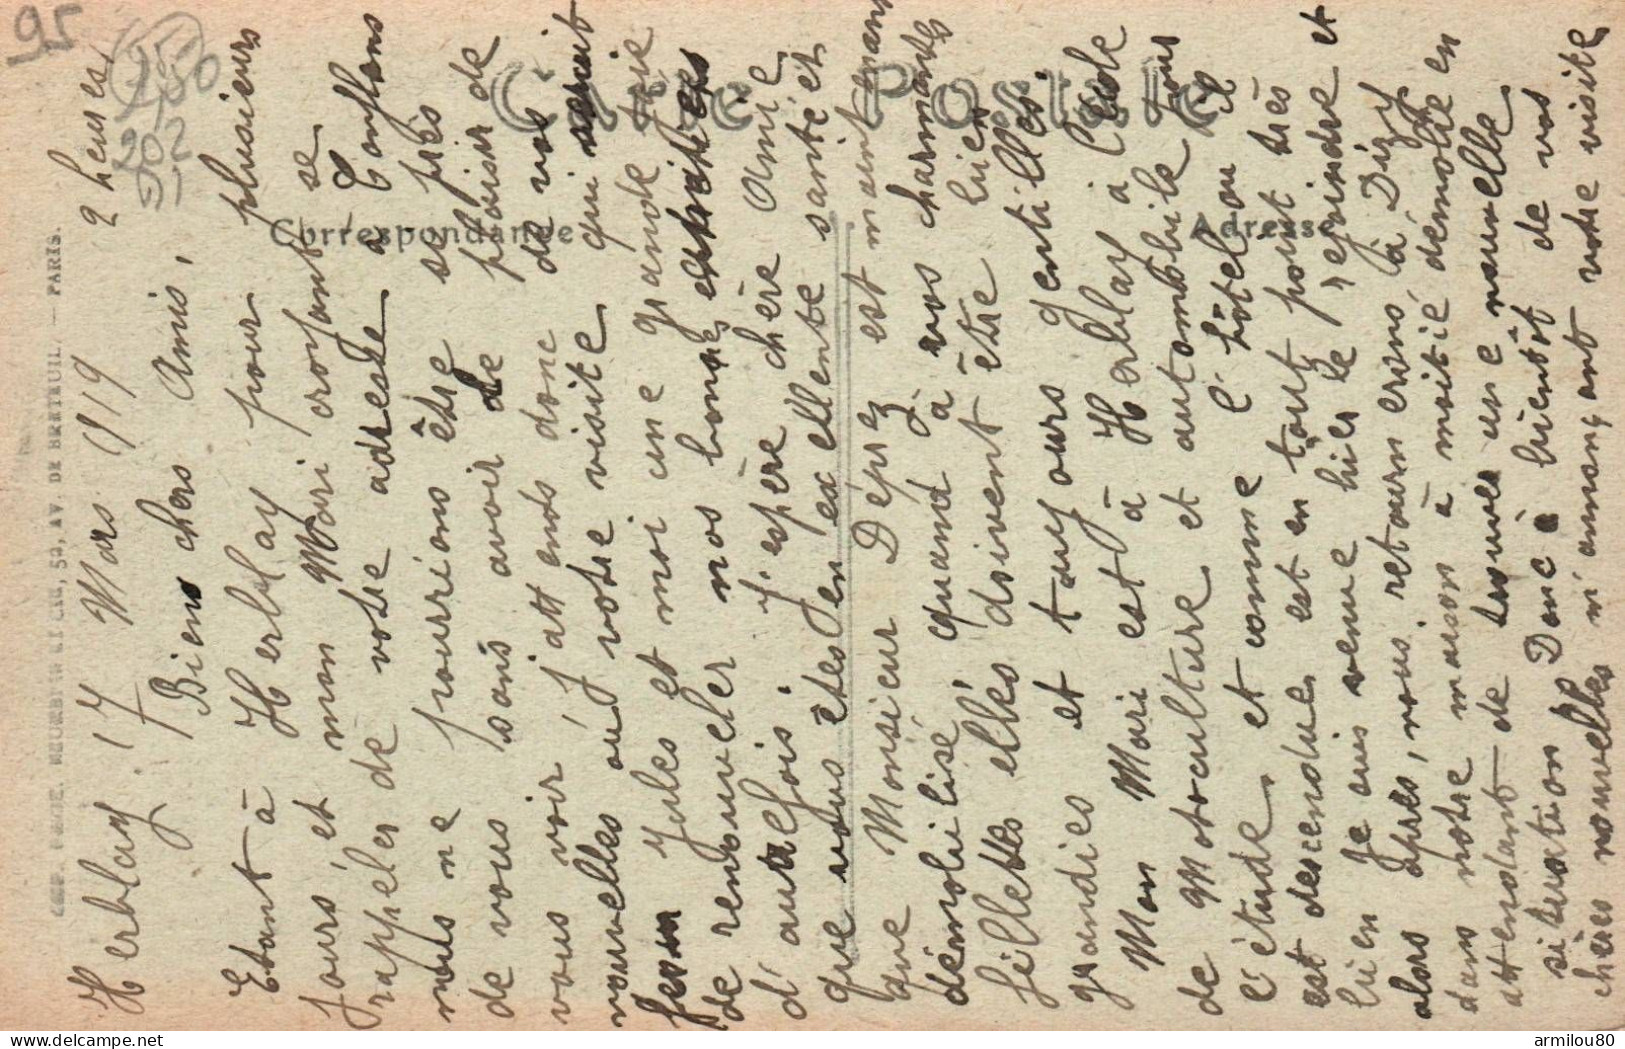 95
25,50
202
Carte Postale
Correspondance
Adresse
50, AV. DE BRETEUIL, — PARIS.
Herblay 17 Mars 1919 2 heures
Bien chers Amis,
Etant à Herblay pour plusieurs
jours, et mon Mari croyant se
rappeler de votre adresse à Conflans
nous ne pourrions être se près
de vous sans avoir le plaisir de
vous voir, j'attends donc de vos
nouvelles ou votre visite, qui serait
pour Jules et moi une grande joie
de renouveler nos bonnes
d'autrefois. J'espère chère Amie,
que vous êtes en excellente santé et
que Monsieur Déprez est maintenant
démobilisé, quand à vos charmantes
fillettes elles doivent être bien
grandies et toujours gentilles.
Mon Mari est à Herblay à l'école
de Motoculture et automobile pour
l'étude, et comme l'hôtel ou il
est descendue, est en tout point très
bien je suis venue hier le rejoindre et
alors après, nous retournerons à Dizy
dans notre maison à moitié démolie en
attendant de trouver une nouvelle
situation. Donc à bientôt de vos
chères nouvelles m'annonçant votre visite,
armilou80